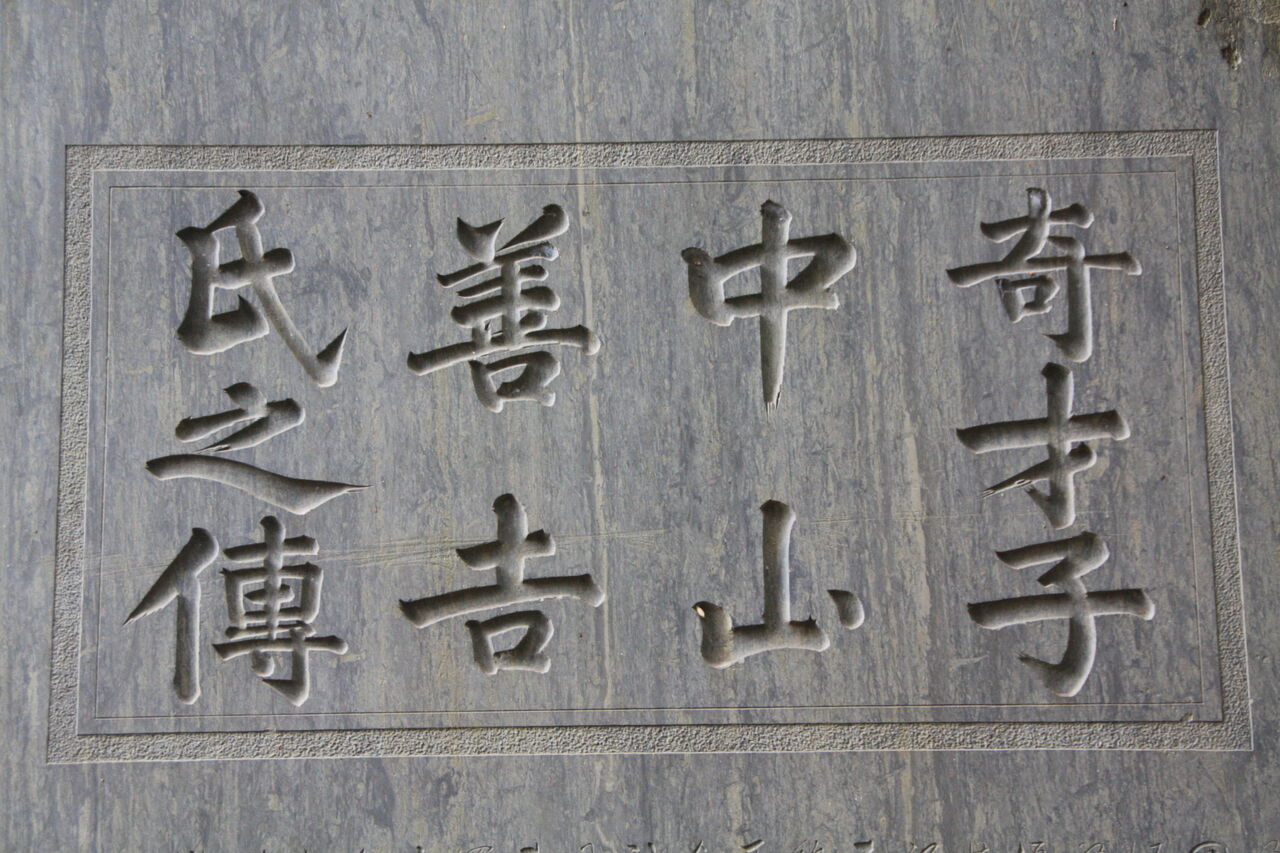 奇才子
中山
善吉
氏之傳